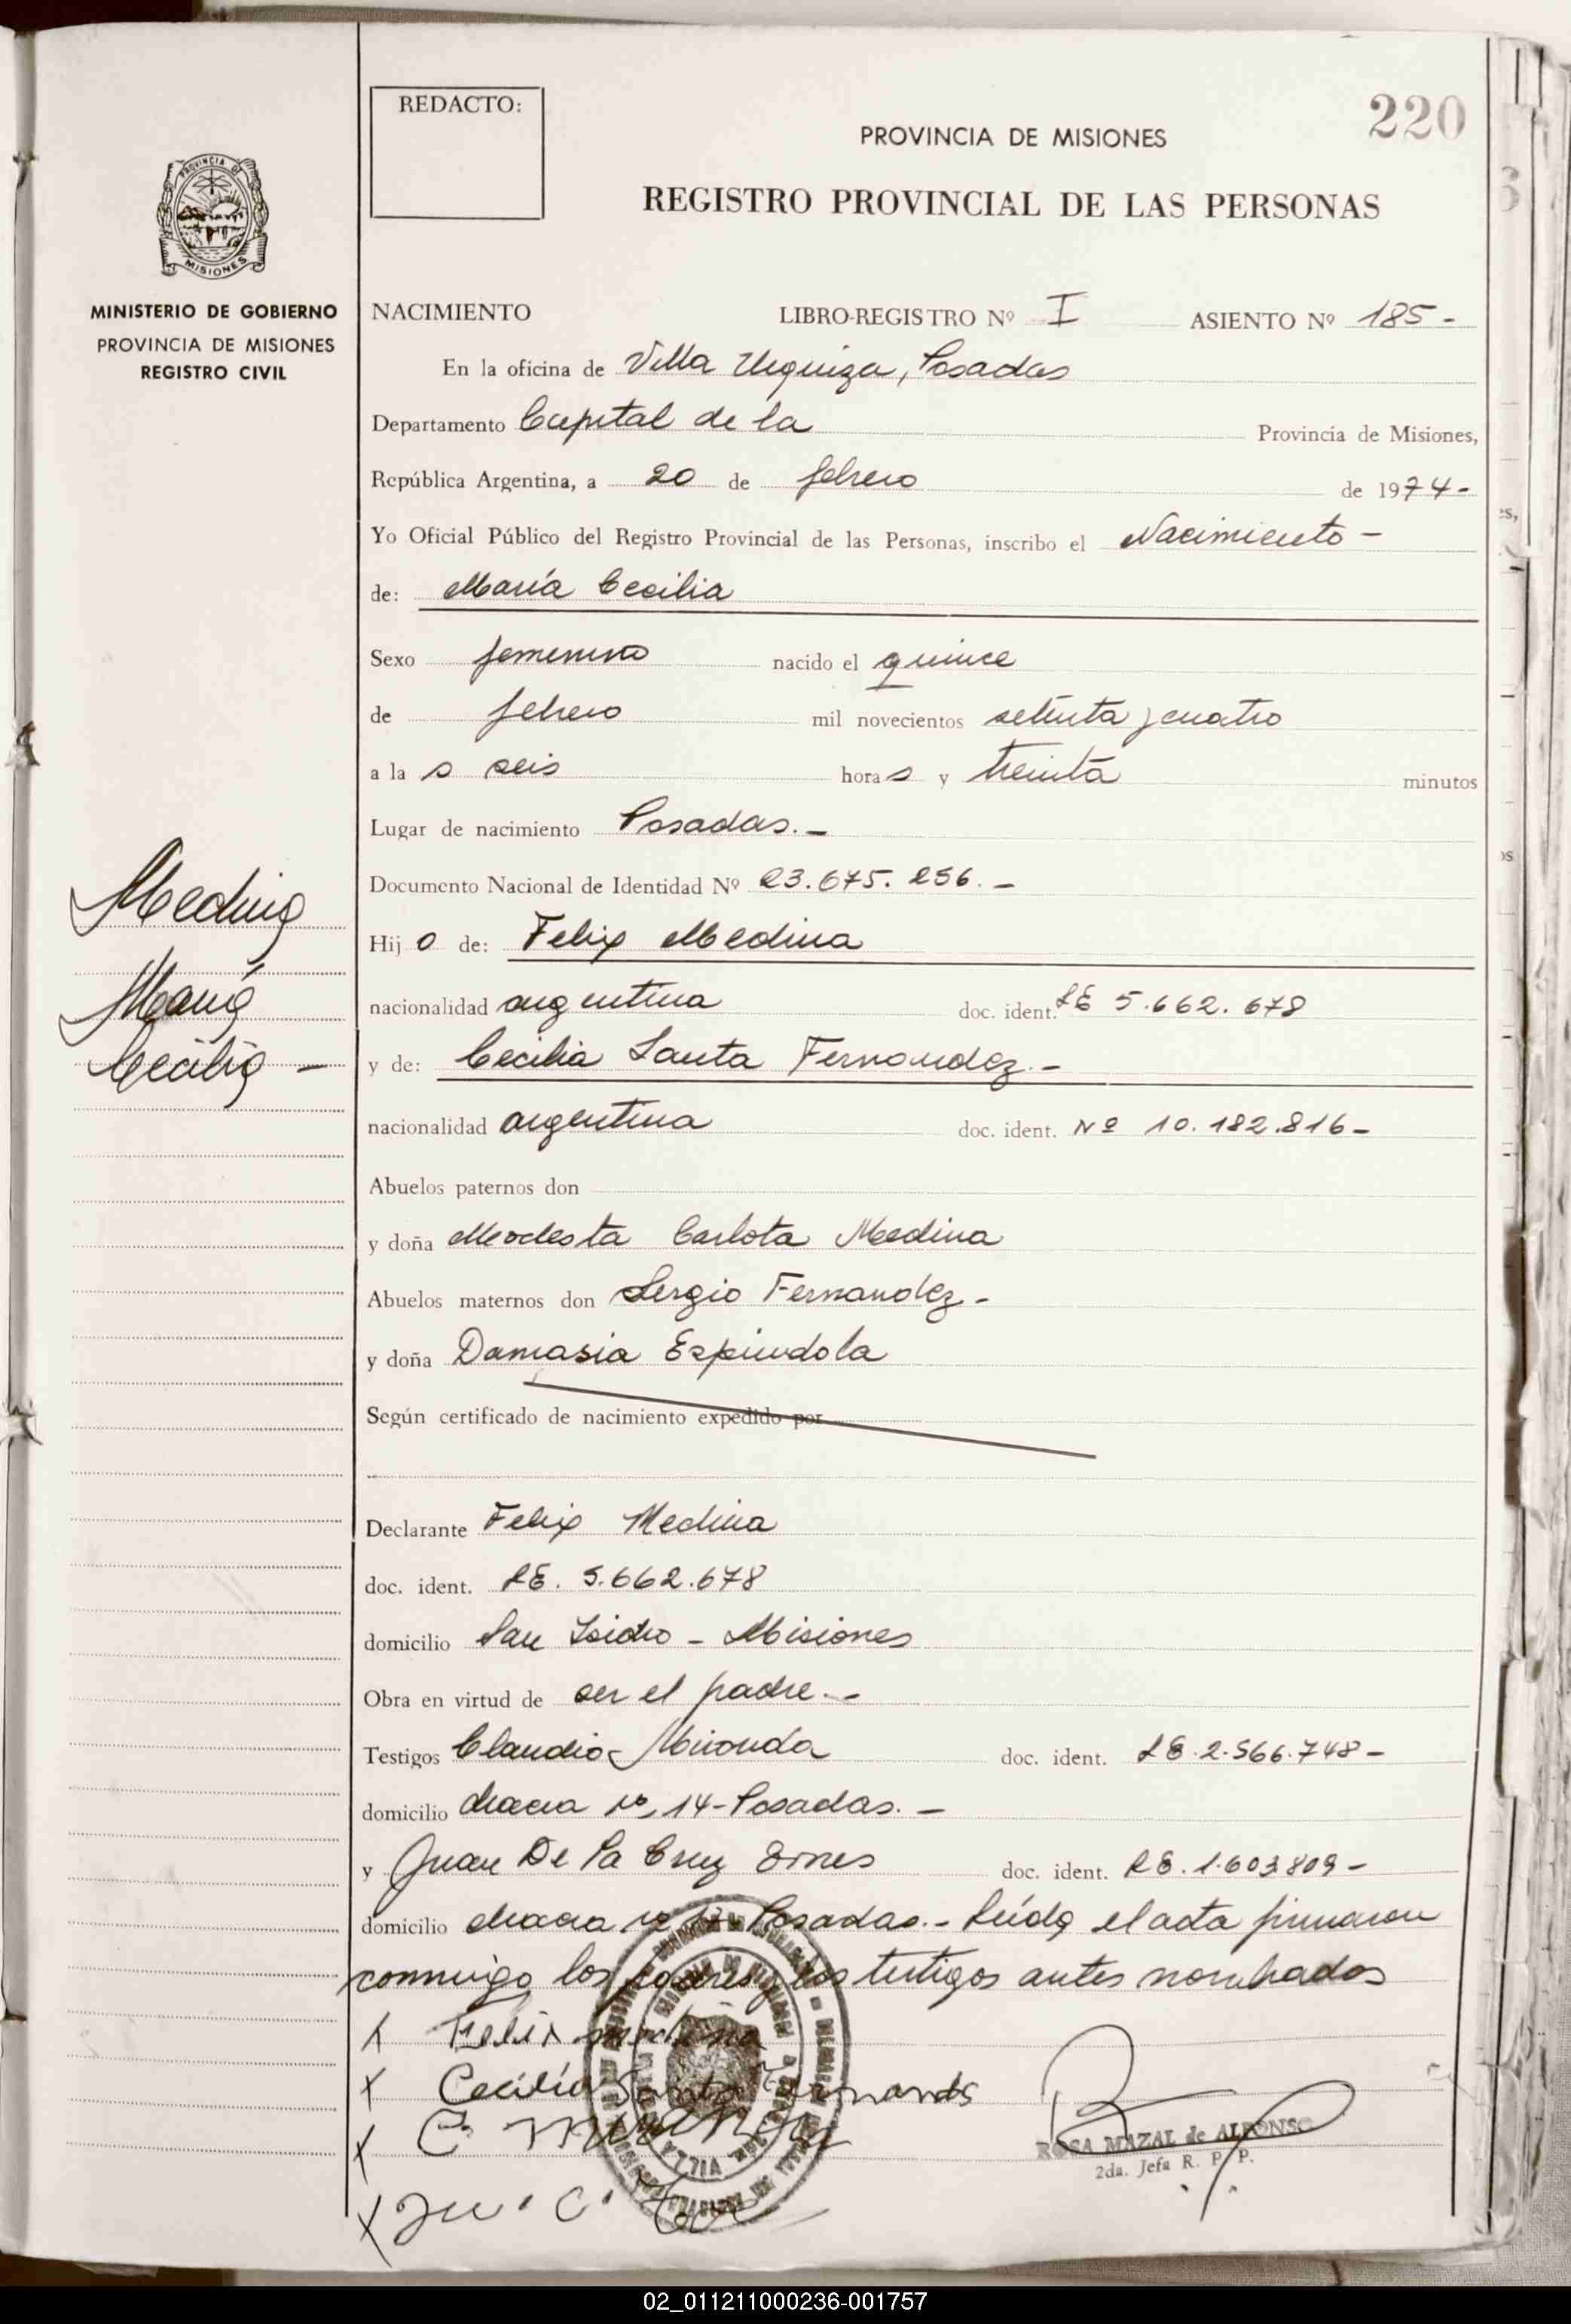 220
REDACTO:
PROVINCIA DE MISIONES
REGISTRO PROVINCIAL DE LAS PERSONAS
PROVINCIA DE
MISIONES
MINISTERIO DE GOBIERNO
PROVINCIA DE MISIONES
REGISTRO CIVIL
NACIMIENTO LIBRO-REGISTRO Nº I ASIENTO Nº 185-
En la oficina de Villa Urquiza, Posadas
Departamento Capital de la Provincia de Misiones,
República Argentina, a 20 de febrero de 1974-
Yo Oficial Público del Registro Provincial de las Personas, inscribo el Nacimiento -
de: María Cecilia
Sexo femenino nacido el quince
de febrero mil novecientos setenta y cuatro
a la s seis hora s y treinta minutos
Lugar de nacimiento Posadas.-
Documento Nacional de Identidad Nº 23.675.256.-
Medina
María
Cecilia -
Hij o de: Felix Medina
nacionalidad argentina doc. ident. LE 5.662.678
y de: Cecilia Santa Fernandez.-
nacionalidad argentina doc. ident. Nº 10.182.816-
Abuelos paternos don
y doña Modesta Carlota Medina
Abuelos maternos don Sergio Fernandez-
y doña Damasia Espindola
Según certificado de nacimiento expedido por
Declarante Felix Medina
doc. ident. LE. 5.662.678
domicilio San Isidro - Misiones
Obra en virtud de ser el padre.-
Testigos Claudio Miranda doc. ident. LE.2.566.748-
domicilio chacra Nº 14-Posadas.-
y Juan De La Cruz doc. ident. LE.1.603.809-
domicilio chacra Nº Posadas.- Leída el acta firmaron
conmigo los padres y los testigos antes nombrados
X Felix medina
X Cecilia Santa Fernandes
X C. Miranda
X
ROSA MAZAL de ALFONSO
2da. Jefa R. P. P.
02_011211000236-001757